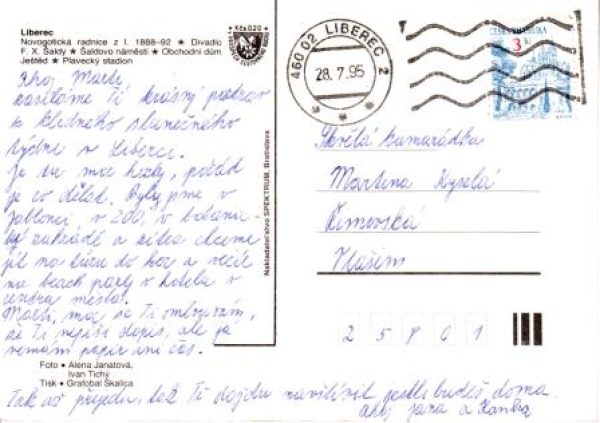 Liberec
Novogotická radnice z l. 1888-92 ★ Divadlo
F. X. Šaldy ★ Šaldovo náměstí ★ Obchodní dům
Ještěd ★ Plavecký stadion
Kčs 0,20
460 02 LIBEREC 2
28.7.95
3 Kč
Ahoj Marti
zasíláme Ti krásný pozdrav
z klidného slunečného
týdne v Liberci.
Je tu moc hezky, pořád
je co dělat. Byly jsme v
Jablonci, v ZOO, v botani-
zahradě a zítra chceme
jít na túru do hor a večer
na beach party v hotelu v
centru města.
Marti, moc se Ti omlouvám,
že Ti nepíši dopis, ale já
nemám papír ani čas.
Tak až přijedu, tož Tě dojdu navštívit jestli budeš doma.
Ahoj Jana a
Nakladatelství SPEKTRUM, Bratislava
Skvělá kamarádka
Martina Kyselá
Vlašim
2 5 8 0 1
Foto • Alena Janatová,
Ivan Tichý
Tisk • Grafobal Skalica